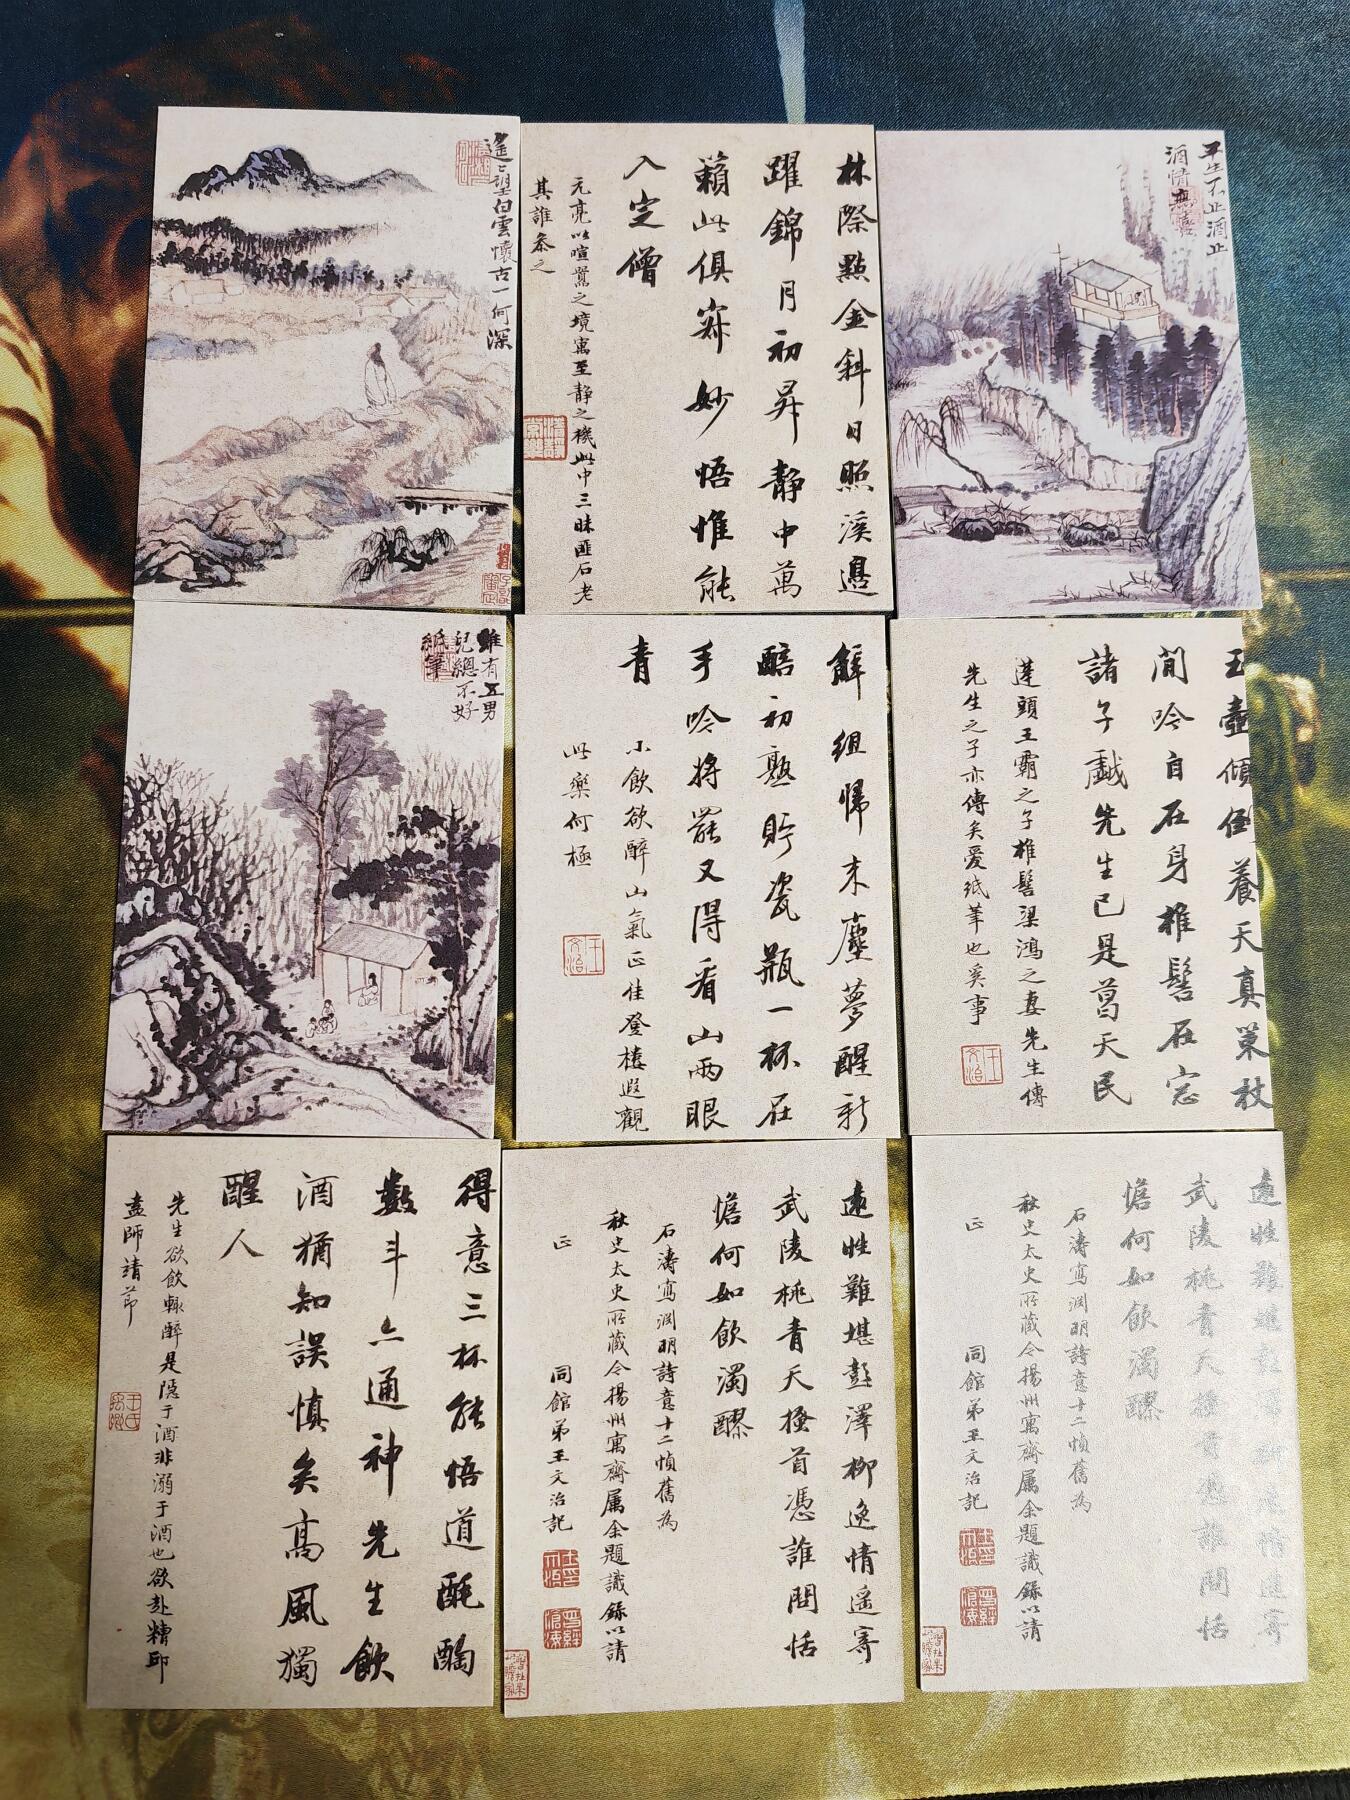 遙遙望白雲懷古一何深
林際點金斜日照溪邊
躍錦月初昇靜中萬
籟此俱寂妙悟惟能
入定僧
元亮以喧囂之境寓至靜之機此中三昧匪石老
其誰參之
平生不止酒止
酒情無喜
雖有五男
兒總不好
紙筆
解組歸來塵夢醒新
醅初熟貯瓷瓶一杯在
手吟將罷又得看山兩眼
青
小飲欲醉山氣正佳登樓遐觀
此樂何極
王文治
玉壺傾倒養天真策杖
閒吟自在身椎髻在室
諸子戲先生已是葛天民
蓬頭王霸之子椎髻梁鴻之妻先生傳
先生之子亦傳矣愛紙筆也奚事
王文治
得意三杯能悟道酕醄
數斗亦通神先生飲
酒猶知誤慎矣高風獨
醒人
先生欲飲輒醉是隱于酒非溺于酒也欲赴糟邱
盍師靖節
遠性難堪彭澤柳逸情遥寄
武陵桃青天搔首憑誰問恬
憺何如飲濁醪
石濤寫淵明詩意十二幀舊為
秋史太史所藏今揚州寓齋属余題識錄以請
正
同館弟王文治記
遠性難堪彭澤柳逸情遥寄
武陵桃青天搔首憑誰問恬
憺何如飲濁醪
石濤寫淵明詩意十二幀舊為
秋史太史所藏今揚州寓齋属余題識錄以請
正
同館弟王文治記